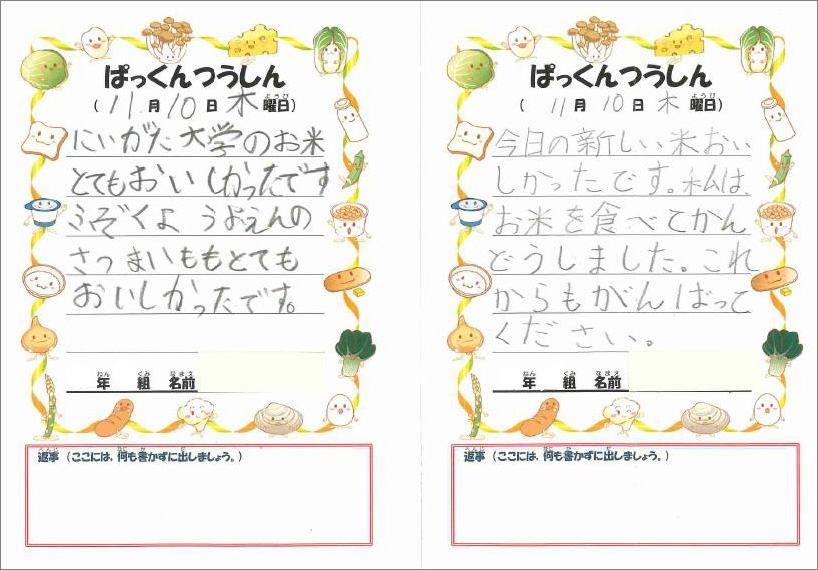 ぱっくんつうしん
ようび
(11月10日木曜日)
にいがた大学のお米
とてもおいしかったです
ふぞくよ うよえんの
さつまいももとても
おいしかったです。
ねん くみ なまえ
年 組 名前
へんじ なに か だ
返事 (ここには、何も書かずに出しましょう。)
ぱっくんつうしん
ようび
(11月10日木曜日)
今日の新しい米おい
しかったです。私は、
お米を食べてかん
どうしました。これ
からもがんばって
ください。
ねん くみ なまえ
年 組 名前
へんじ なに か だ
返事 (ここには、何も書かずに出しましょう。)